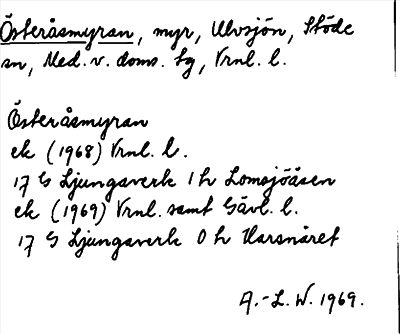 Österåsmyran, myr, Ulvsjön, Stöde
sn, Med. v. doms. tg, Vrnl. l.
Österåsmyran
ek (1968) Vrnl. l.
17 G Ljungaverk 1 h Lomsjöåsen
ek (1969) Vrnl. samt Gävl. l.
17 G Ljungaverk 0 h Harsnäret
A.-L. W. 1969.